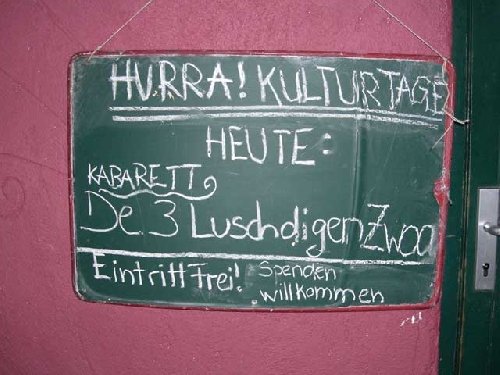 HURRA! KULTURTAGE
HEUTE:
KABARETT
De 3 Luschdigen Zwoa
Eintritt Frei! Spenden
willkommen